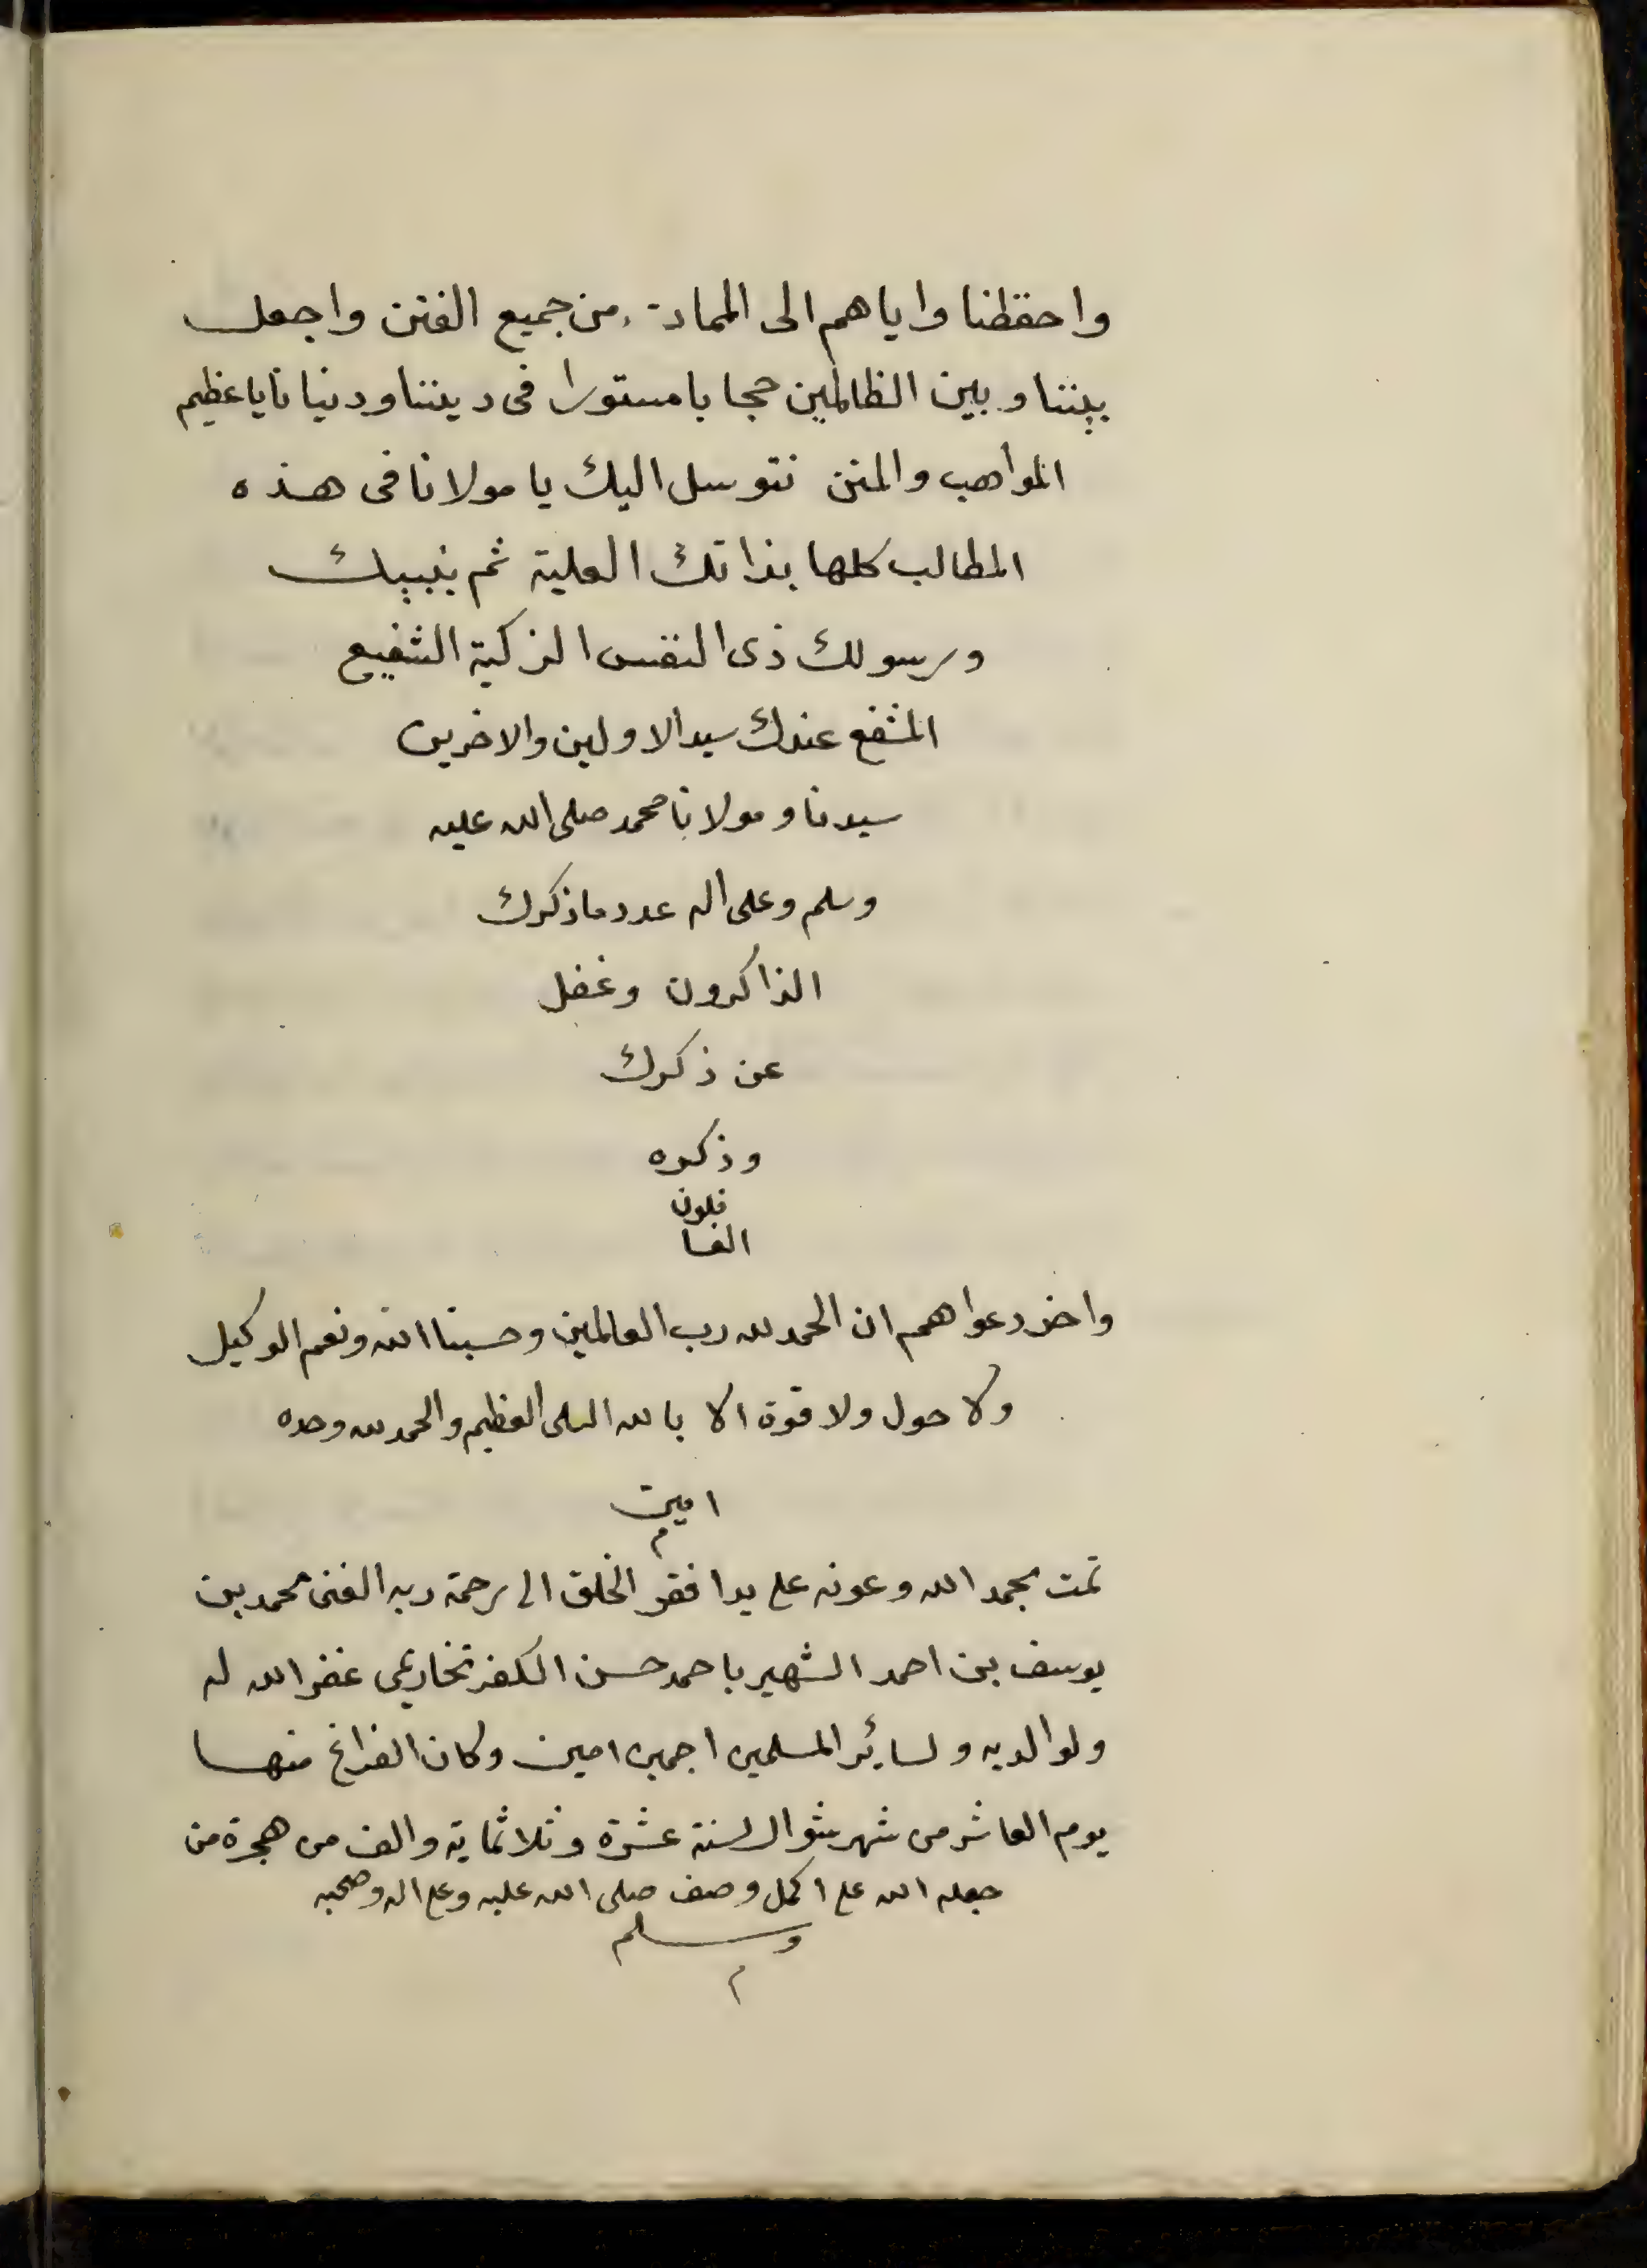 واحفظنا واياهم الى الممات من جميع الفتن واجعل
بيننا وبين الظالمين حجابا مستورا فى ديننا ودنيانا يا عظيم
المواهب والمنن نتوسل اليك يا مولانا فى هذه
المطالب كلها بذاتك العلية ثم بنبيك
ورسولك ذى النفس الزكية الشفيع
المشفع عندك سيد الاولين والاخرين
سيدنا ومولانا محمد صلى الله عليه
وسلم وعلى اله عدد ما ذكرك
الذاكرون وغفل
عن ذكرك
وذكره
الغا
فلون
واخر دعواهم ان الحمد لله رب العالمين وحسبنا الله ونعم الوكيل
ولا حول ولا قوة الا بالله العلى العظيم والحمد لله وحده
امين
م
تمت بحمد الله وعونه على يد افقر الخلق الى رحمة ربه الغنى محمد بن
يوسف بن احمد الشهير باحمد حسن الكفر غفر الله له
ولوالديه ولسائر المسلمين اجمعين امين وكان الفراغ منها
يوم العاشر من شهر شوال لسنة عشرة وثلاثماية والف من هجرة من
جعله الله على اكمل وصف صلى الله عليه وعلى اله وصحبه
وسلم
م